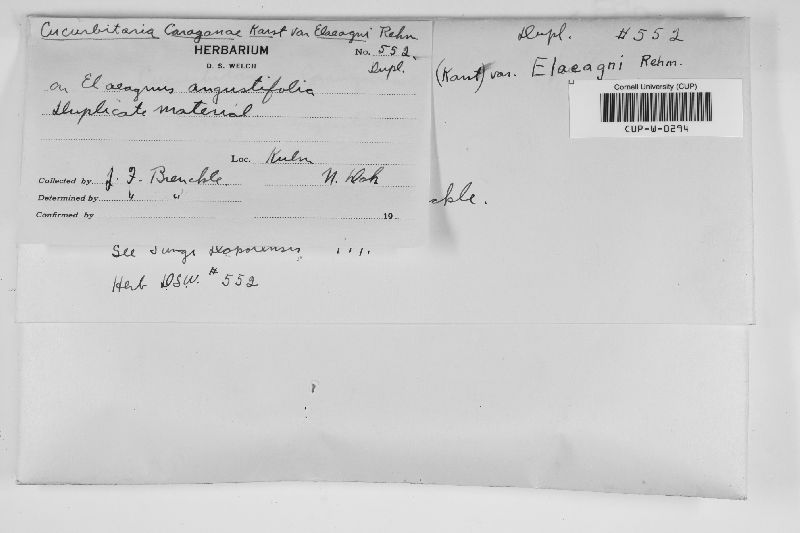 Cucurbitaria Caraganae Karst var Elaeagni Rehm
HERBARIUM
D. S. WELCH
No. 552.
Dupl.
on Elaeagnus angustifolia
Duplicate material
Loc. Kulm
Collected by J. F. Brenckle
N. Dak
Determined by " "
Confirmed by
19
See Fungi
Herb DSW. # 552
Dupl. #552
(Karst) var. Elaeagni Rehm.
Cornell University (CUP)
CUP-W-0294
ckle.